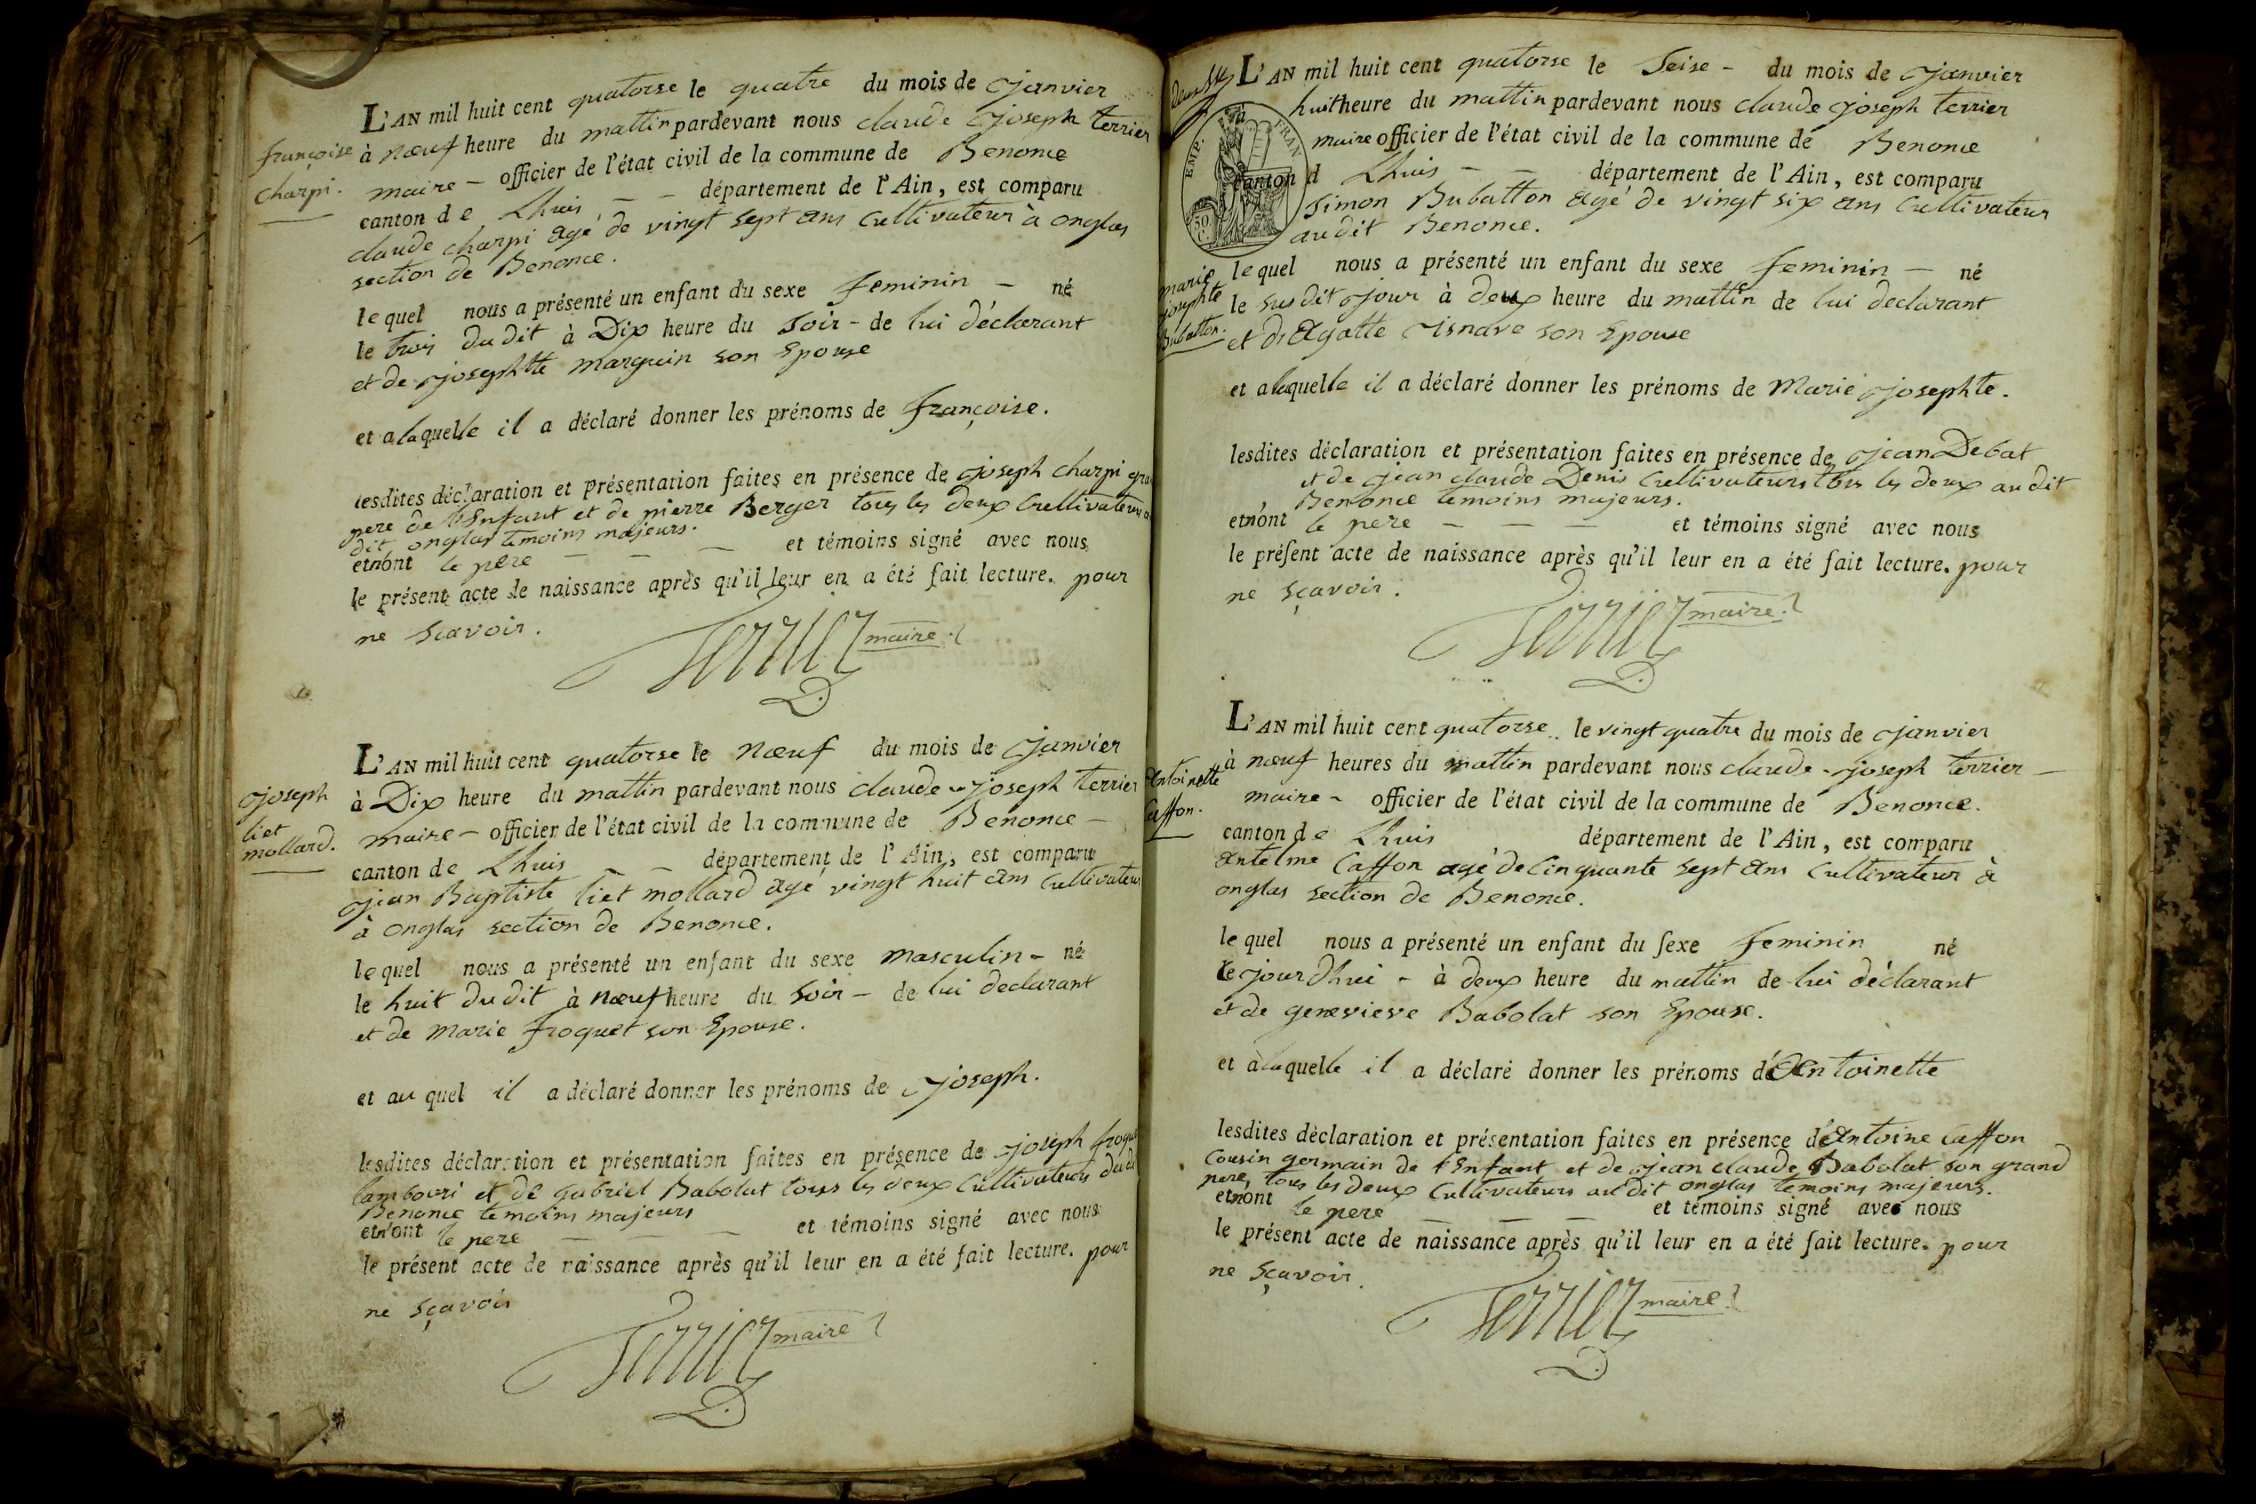 françoise
charpi.
L'AN mil huit cent quatorse le quatre du mois de janvier
à nœuf heure du mattin pardevant nous claude joseph terrier
maire – officier de l'état civil de la commune de Benonce
canton de Lhuis – – département de l'Ain, est comparu
claude charpi agé de vingt sept ans Cultivateur à onglas
section de Benonce.
lequel nous a présenté un enfant du sexe feminin – né
le trois du dit à Dix heure du soir – de lui déclarant
et de josephte marguin son Epouse
et a laquelle il a déclaré donner les prénoms de françoise.
lesdites déclaration et présentation faites en présence de joseph charpi gra
pere de l'Enfant et de pierre Berger tous les deux Cultivateurs
dit onglas temoins majeurs.
etn'ont le pere – – – et témoins signé avec nous
le présent acte de naissance après qu'il leur en a été fait lecture. pour
ne sçavoir.
Terrier maire
joseph
liet
mollard.
L'AN mil huit cent quatorse le nœuf du mois de janvier
à Dix heure du mattin pardevant nous claude joseph terrier
maire – officier de l'état civil de la commune de Benonce –
canton de Lhuis – – département de l'Ain, est comparu
jean Baptiste liet mollard agé vingt huit ans Cultivateur
à onglas section de Benonce.
lequel nous a présenté un enfant du sexe masculin – né
le huit du dit à nœuf heure du soir – de lui declarant
et de marie froquet son Epouse.
et au quel il a déclaré donner les prénoms de joseph.
lesdites déclaration et présentation faites en présence de joseph froque
lambouri et de gabriel Babolat tous les deux Cultivateurs du di
Benonce temoins majeurs
etn'ont le pere – – – et témoins signé avec nous
le présent acte de naissance après qu'il leur en a été fait lecture. pour
ne sçavoir
Terrier maire
L'AN mil huit cent quatorse le seise – du mois de janvier
huit heure du mattin pardevant nous claude joseph terrier
maire officier de l'état civil de la commune de Benonce
EMP. FRAN
50 C.
canton d Lhuis – – département de l'Ain, est comparu
simon Bubatton agé de vingt six ans Cultivateur
audit Benonce.
marie
josephte
Bubatton.
lequel nous a présenté un enfant du sexe feminin – né
le susdit jour à deux heure du mattin de lui declarant
et d'Agatte isnave son Epouse
et a laquelle il a déclaré donner les prénoms de Marie josephte.
lesdites déclaration et présentation faites en présence de jean Debat
et de jean claude Denis Cultivateurs tous les deux au dit
Benonce temoins majeurs.
etn'ont le pere – – – et témoins signé avec nous
le présent acte de naissance après qu'il leur en a été fait lecture. pour
ne sçavoir.
Terrier maire
Antoinette
Caffon.
L'AN mil huit cent quatorse le vingt quatre du mois de janvier
à nœuf heures du mattin pardevant nous claude joseph terrier –
maire – officier de l'état civil de la commune de Benonce.
canton de Lhuis département de l'Ain, est comparu
antelme Caffon agé de Cinquante sept ans Cultivateur à
onglas section de Benonce.
lequel nous a présenté un enfant du sexe feminin né
le jourdhui – à deux heure du mattin de lui déclarant
et de genevieve Babolat son Epouse.
et à laquelle il a déclaré donner les prénoms d'Antoinette
lesdites déclaration et présentation faites en présence d'Antoine Caffon
Cousin germain de l'Enfant et de jean claude Babolat son grand
pere, tous les deux Cultivateurs au dit onglas temoins majeurs.
etn'ont le pere – – – et témoins signé avec nous
le présent acte de naissance après qu'il leur en a été fait lecture. pour
ne sçavoir.
Terrier maire